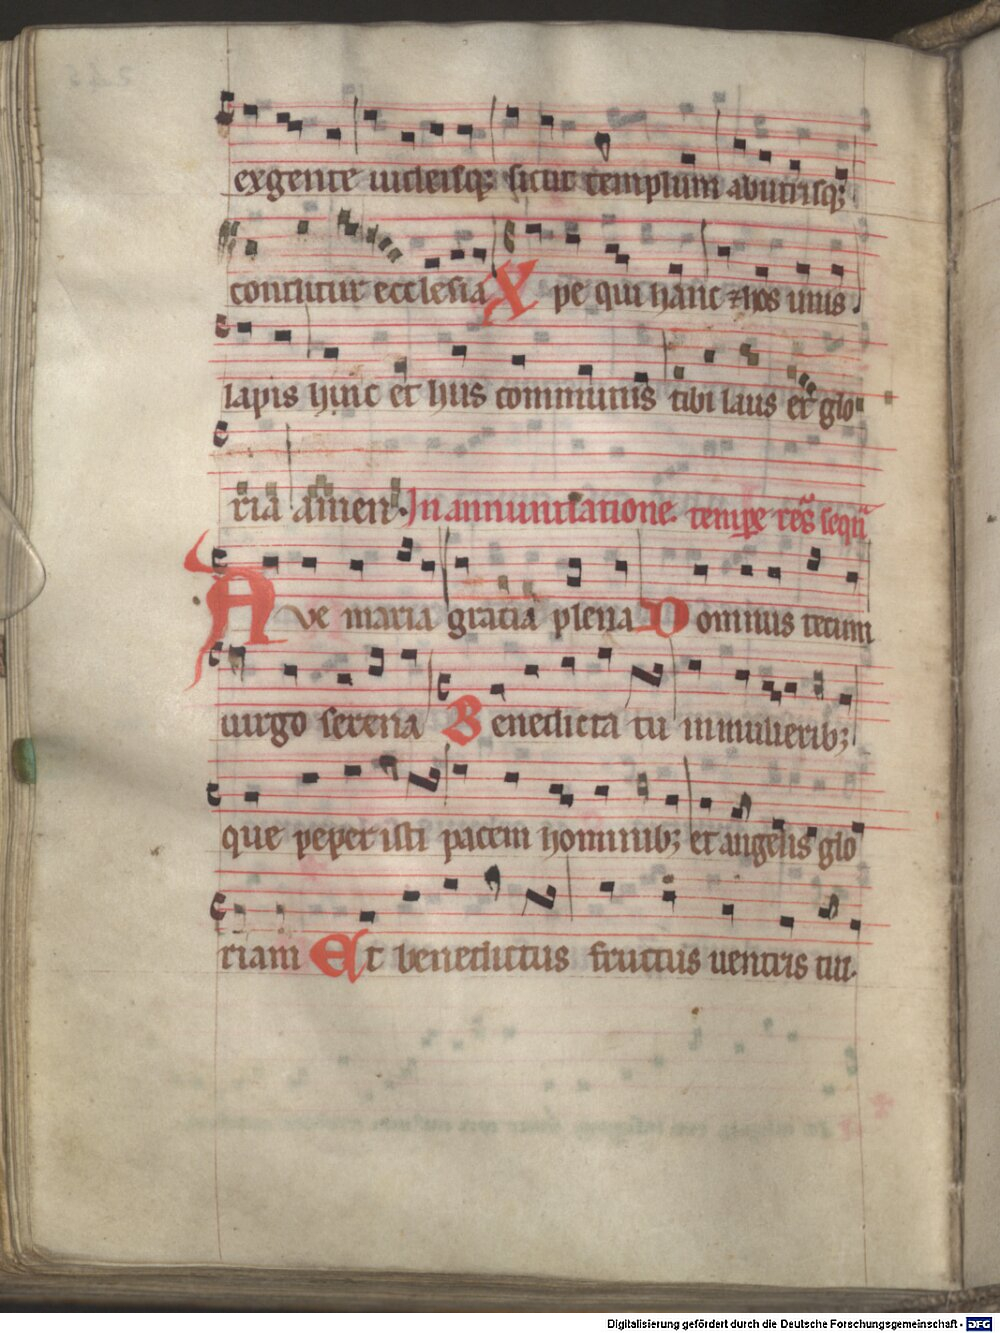 exgente iudeisq; sicut templum abutrisq;
construitur ecclesia Xpe qui hanc ⁊ hos unus
lapis hinc et hiis communis tibi laus et glo
ria amen. In annuntiatione. tempe res sequē
Ave maria gracia plena Dominus tecum
uirgo serena Benedicta tu in mulierib;
que peperisti pacem hominib; et angelis glo
riam Et benedictus fructus uentris tui.
Digitalisierung gefördert durch die Deutsche Forschungsgemeinschaft - DFG